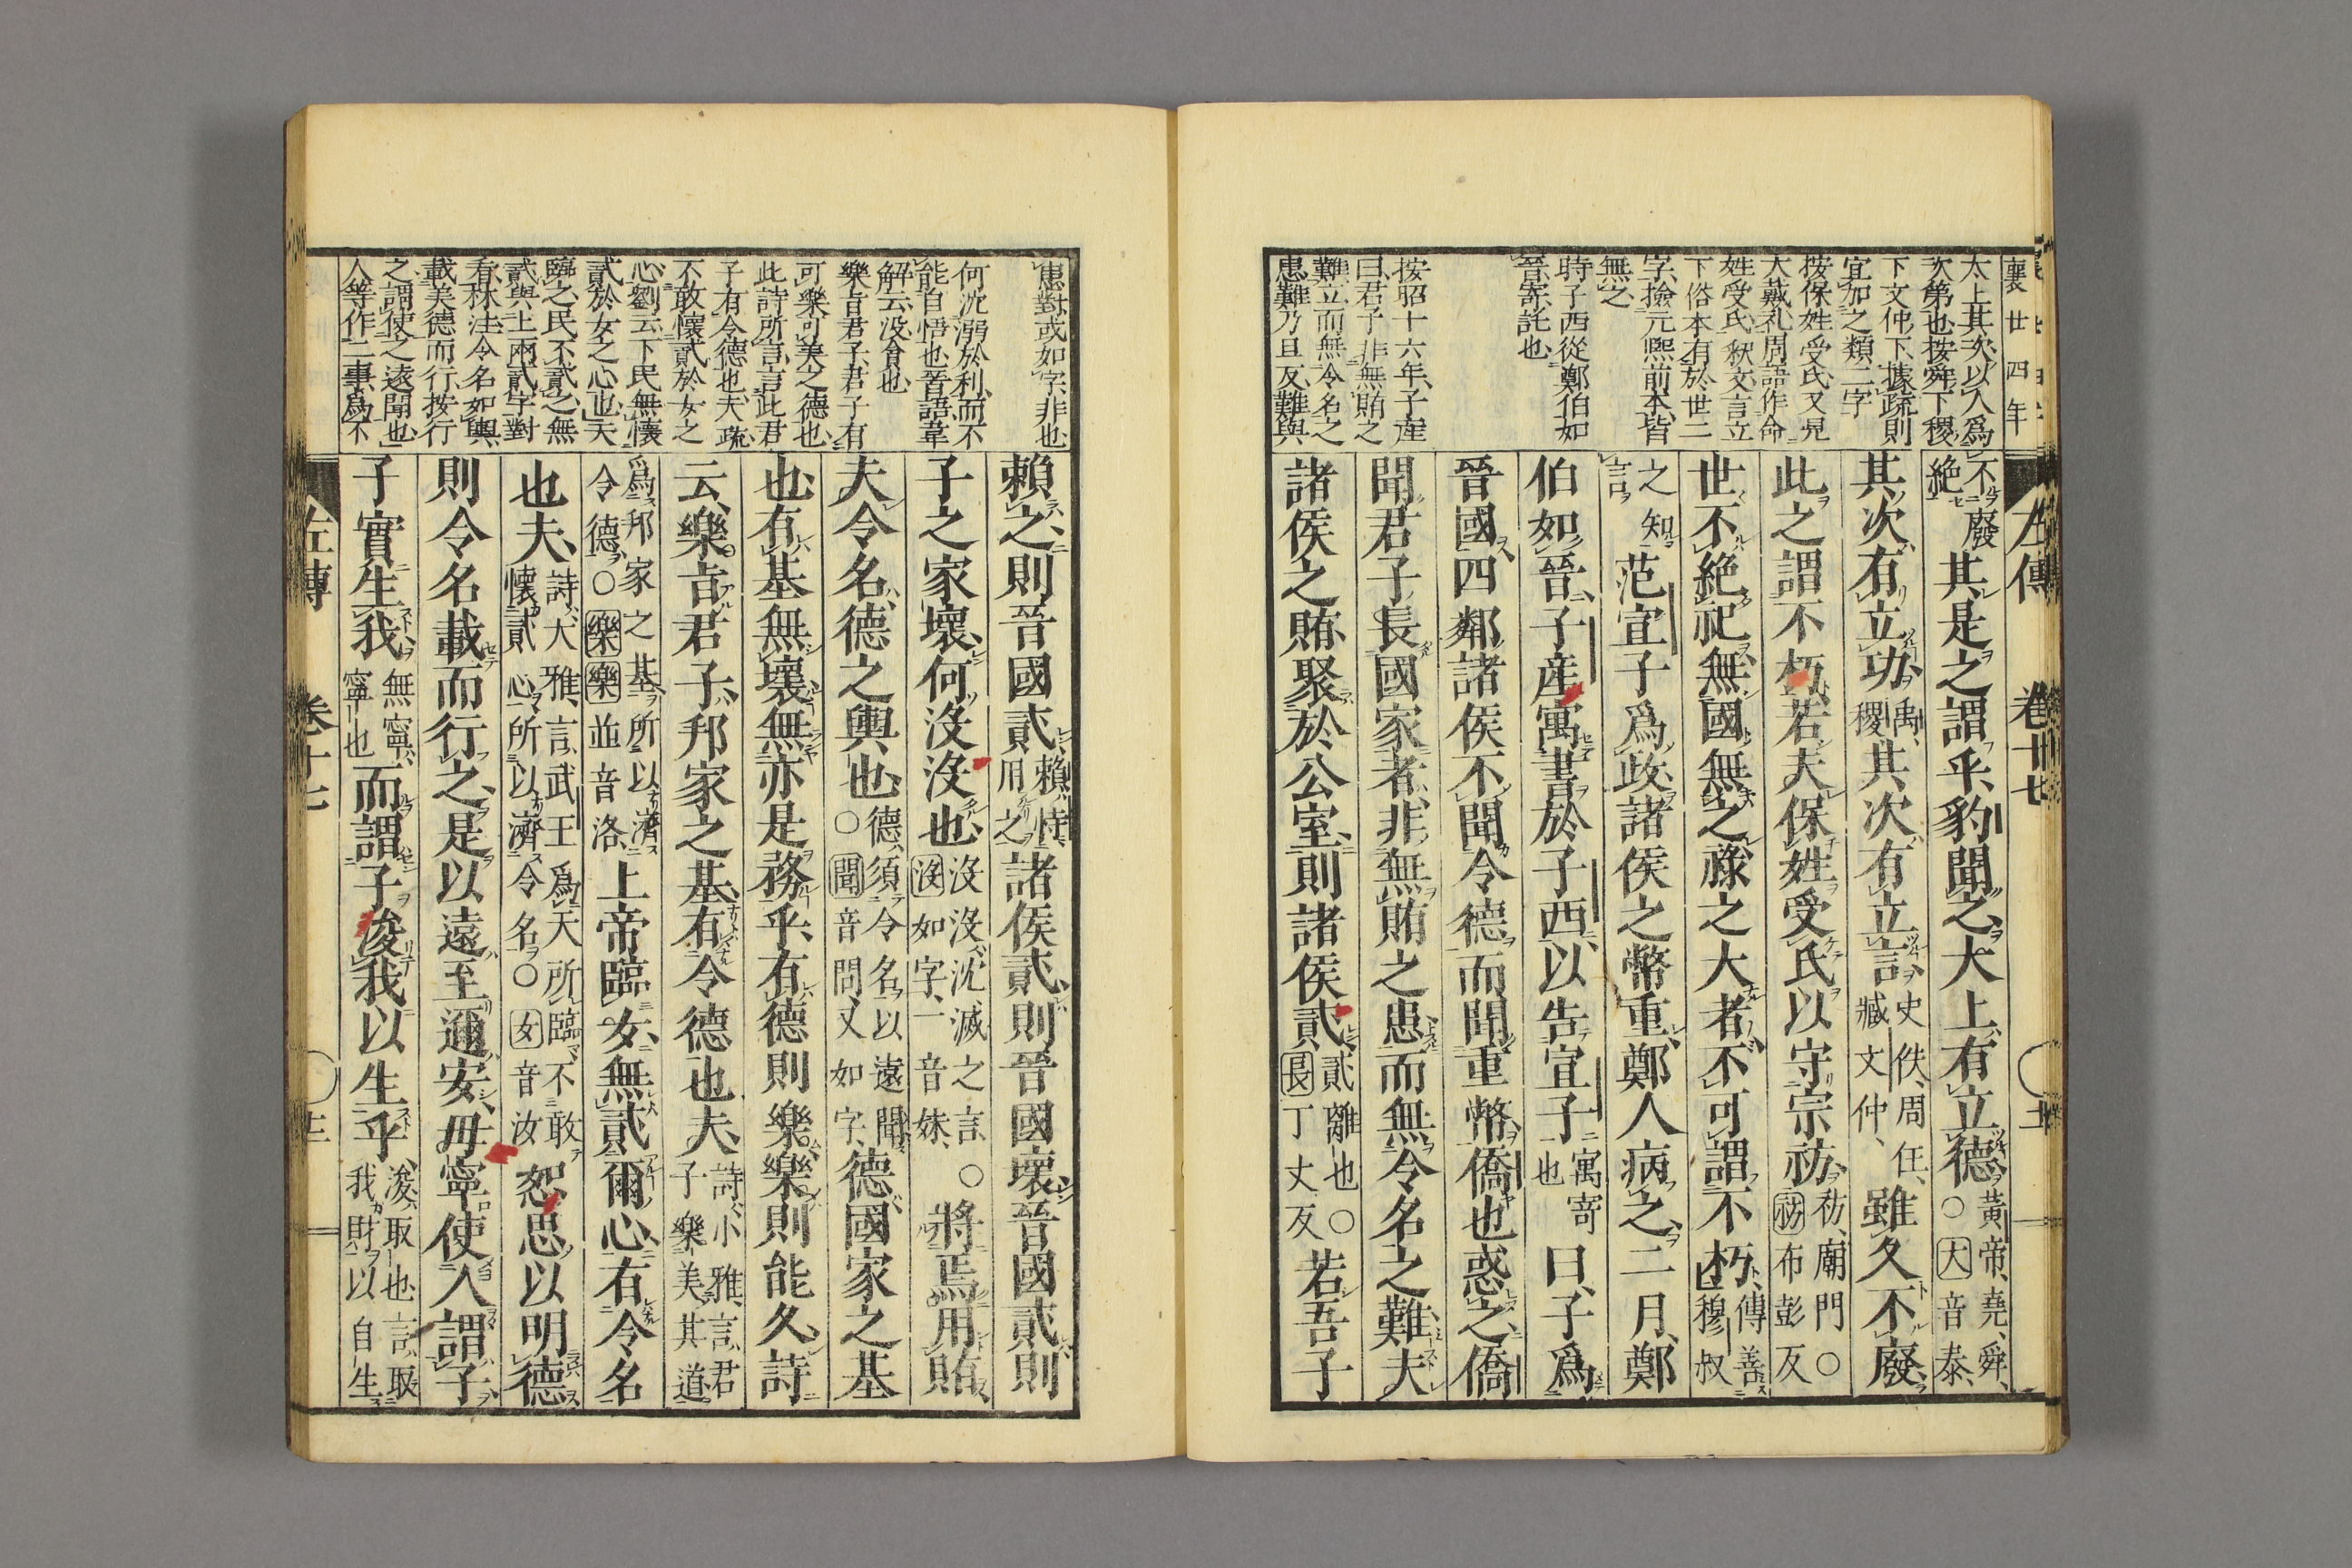 襄廿四年
太上其次以人爲
次第也按舜下稷
下文仲下據疏則
宜加之類二字
按保姓受氏又見
大戴礼周語作命
姓受氏釈文言立
下俗本有於世二
字撿元熙前本皆
無之
時子西從鄭伯如
晉寄託也
按昭十六年子產
曰君子非無賄之
難立而無令名之
患難乃且反難與
左傳 卷十七
不廢
絕
其是之謂乎豹聞之大上有立德
黃帝堯舜
○大音泰
其次有立功
禹
稷
其次有立言
史佚周任
臧文仲
雖久不廢
此之謂不朽若夫保姓受氏以守宗祊
祊廟門○
祊布彭反
世不絕祀無國無之祿之大者不可謂不朽
傳善
穆叔
之知
言
范宣子爲政諸侯之幣重鄭人病之二月鄭
伯如晉子産寓書於子西以告宣子
寓寄
也
曰子爲
晉國四鄰諸侯不聞令德而聞重幣僑也惑之僑
聞君子長國家者非無賄之患而無令名之難夫
諸侯之賄聚於公室則諸侯貳
貳離也○
長丁丈反
若吾子
患對或如字非也
何沈溺於利而不
能自悟也晉語韋
解云没貪也
樂旨君子君子有
可樂可美之德也
此詩所言言此君
子有令德也夫疏
不敢懷貳於女之
心劉云下民無懷
貳於女之心也天
臨之民不貳之無
貳與上兩貳字對
看林注令名如輿
載美德而行按行
之謂使之遠聞也
人等作二事爲不
賴之則晉國貳
賴恃
用之
諸侯貳則晉國壞晉國貳則
子之家壞何沒沒也
沒沒沈滅之言○
沒如字一音妹
將焉用賄
夫令名德之輿也
德須令名以遠聞
○聞音問又如字
德國家之基
也有基無壞無亦是務乎有德則樂樂則能久詩
云樂旨君子邦家之基有令德也夫
詩小雅言君
子樂美其道
爲邦家之基所以濟
令德○樂樂並音洛
上帝臨女無貳爾心有令名
也夫
詩大雅言武王爲天所臨不敢
懷貳心所以濟令名○女音汝
恕思以明德
則令名載而行之是以遠至邇安毋寧使人謂子
子實生我
無寧
寧也
而謂子浚我以生乎
浚取也言取
我財以自生
左傳 卷十七